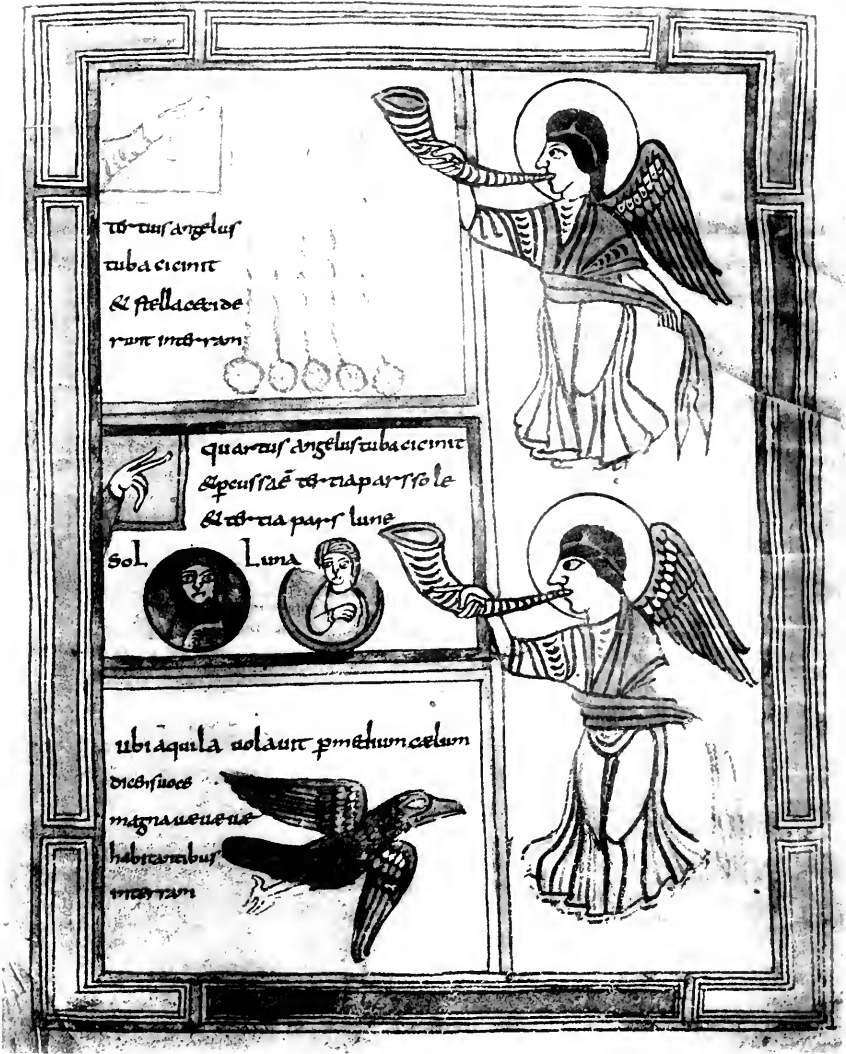 tertius angelus
tuba cicinit
& stella cecide
runt interram
quartus angelus tuba cicinit
& pcussaē tertia pars sole
& tertia pars lune
Sol Luna
ubi aquila uolauit p medium cælum
dicens uoce
magna uæ uæ uæ
habitantibus
interram